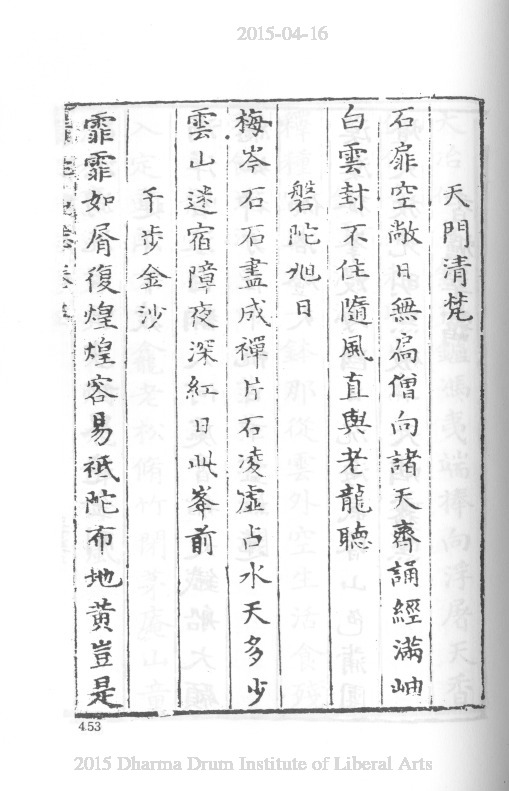 2015-04-16
天門清梵
石扉空敞日無扃僧向諸天齊誦經滿岫
白雲封不住隨風直與老龍聽
磐陀旭日
梅岑石石盡成禪片石凌虛占水天多少
雲山迷宿障夜深紅日此峯前
千步金沙
霏霏如屑復煌煌容易祇陀布地黃豈是
453
2015 Dharma Drum Institute of Liberal Arts